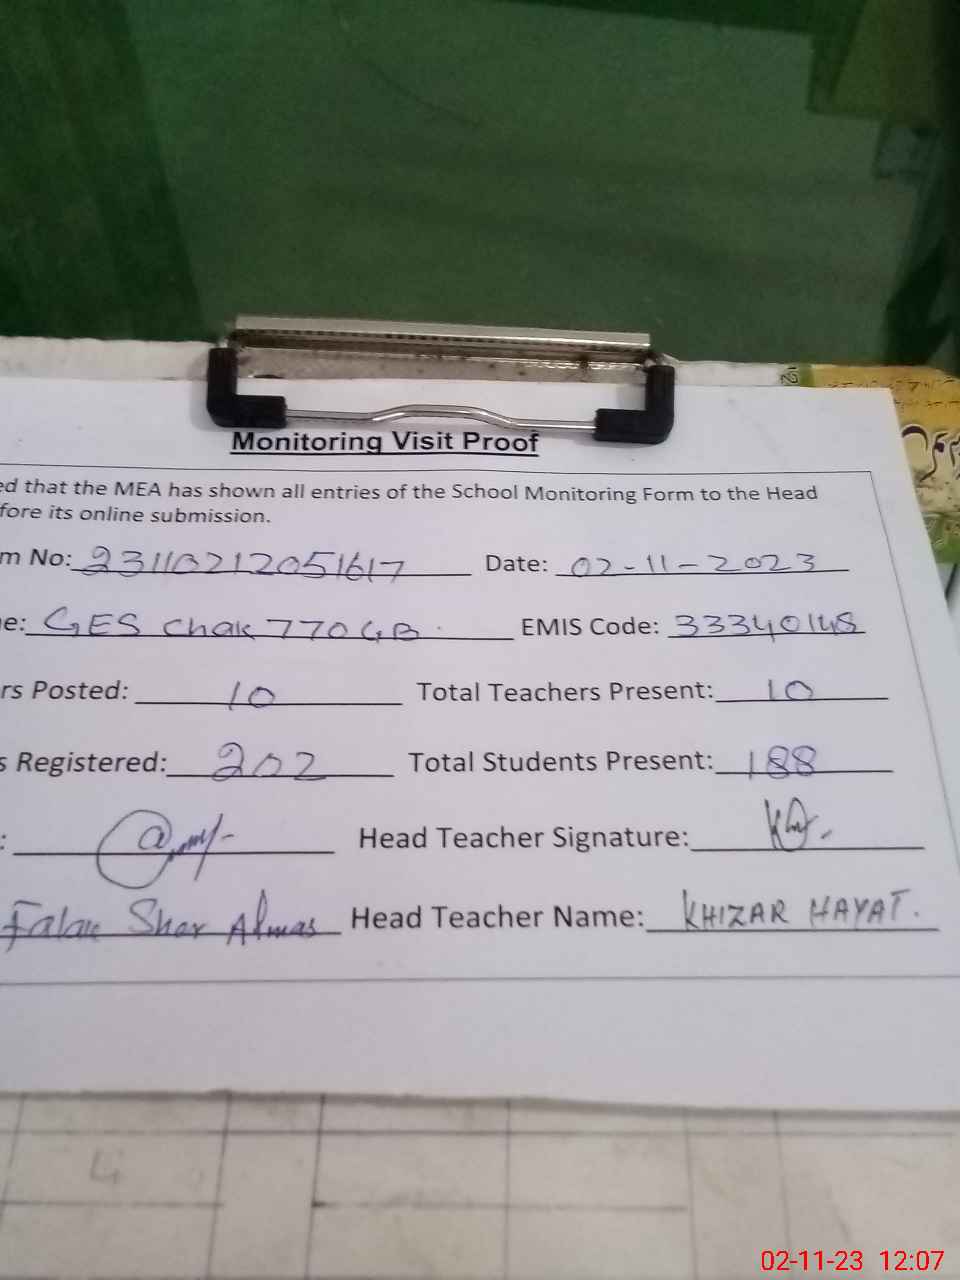 Monitoring Visit Proof
ed that the MEA has shown all entries of the School Monitoring Form to the Head
fore its online submission.
m No: 23110212051617 Date: 02-11-2023
e: GES Chak 770 GB. EMIS Code: 33340148
rs Posted: 10 Total Teachers Present: 10
s Registered: 202 Total Students Present: 188
: Head Teacher Signature:
Falak Sher Almas Head Teacher Name: KHIZAR HAYAT.
4
02-11-23 12:07